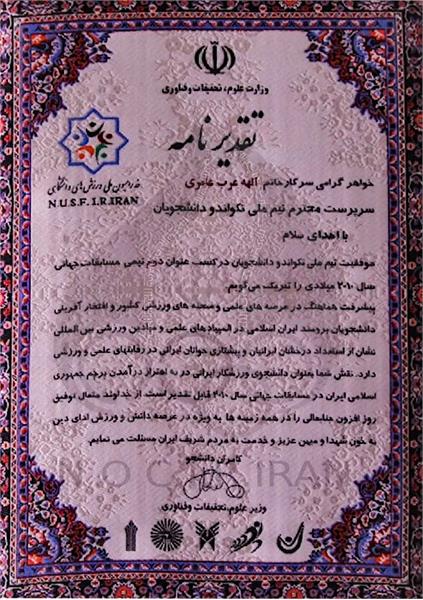 وزارت علوم، تحقیقات وفناوری
تقدیر نامه
فدراسیون ملی ورزش های دانشگاهی
N.U.S.F. I.R.IRAN
خواهر گرامی سرکار خانم الهه عرب عامری
سرپرست محترم تیم ملی تکواندو دانشجویان
با اهدای سلام
موفقیت تیم ملی تکواندو دانشجویان در کسب عنوان دوم تیمی مسابقات جهانی
سال ۲۰۱۰ میلادی را تبریک می‌گویم.
پیشرفت هماهنگ در عرصه های علمی و صحنه های ورزشی کشور و افتخار آفرینی
دانشجویان برومند ایران اسلامی در المپیادهای علمی و میادین ورزشی بین المللی
نشان از استعداد درخشان ایرانیان و پیشتازی جوانان ایرانی در رقابتهای علمی و ورزشی
دارد. نقش شما بعنوان دانشجوی ورزشکار ایرانی در به اهتزاز درآمدن پرچم جمهوری
اسلامی ایران در مسابقات جهانی سال ۲۰۱۰ قابل تقدیر است. از خداوند متعال توفیق
روز افزون جنابعالی را در همه زمینه ها به ویژه در عرصه دانش و ورزش ادای دین
به خون شهدا و میهن عزیز و خدمت به مردم شریف ایران مسئلت می نمایم.
کامران دانشجو
وزیر علوم، تحقیقات وفناوری
N O C IRAN